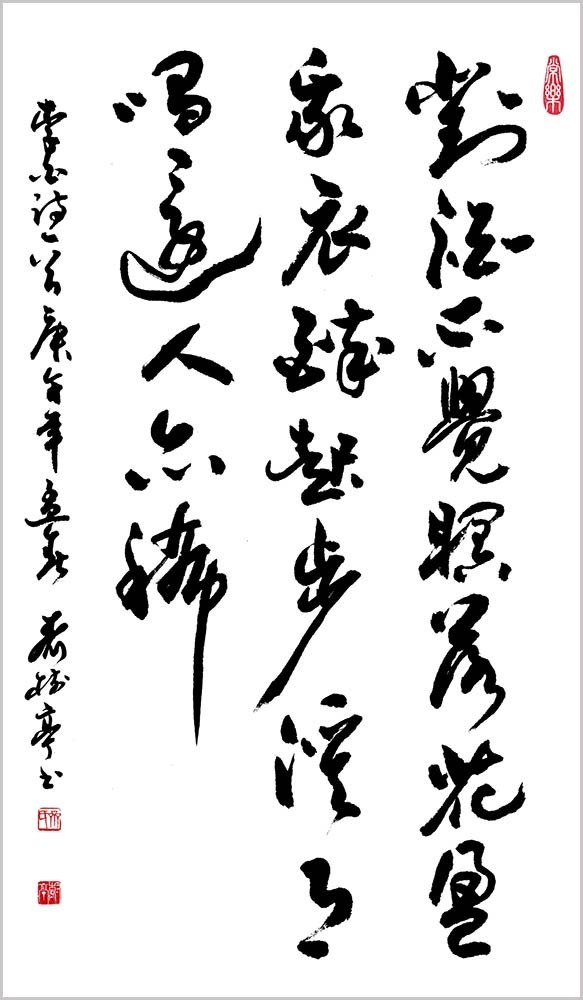 常樂
對酒不覺暝落花盈
我衣醉起步溪月
鳥還人亦稀
李白詩一首庚午年孟春 樹亭書